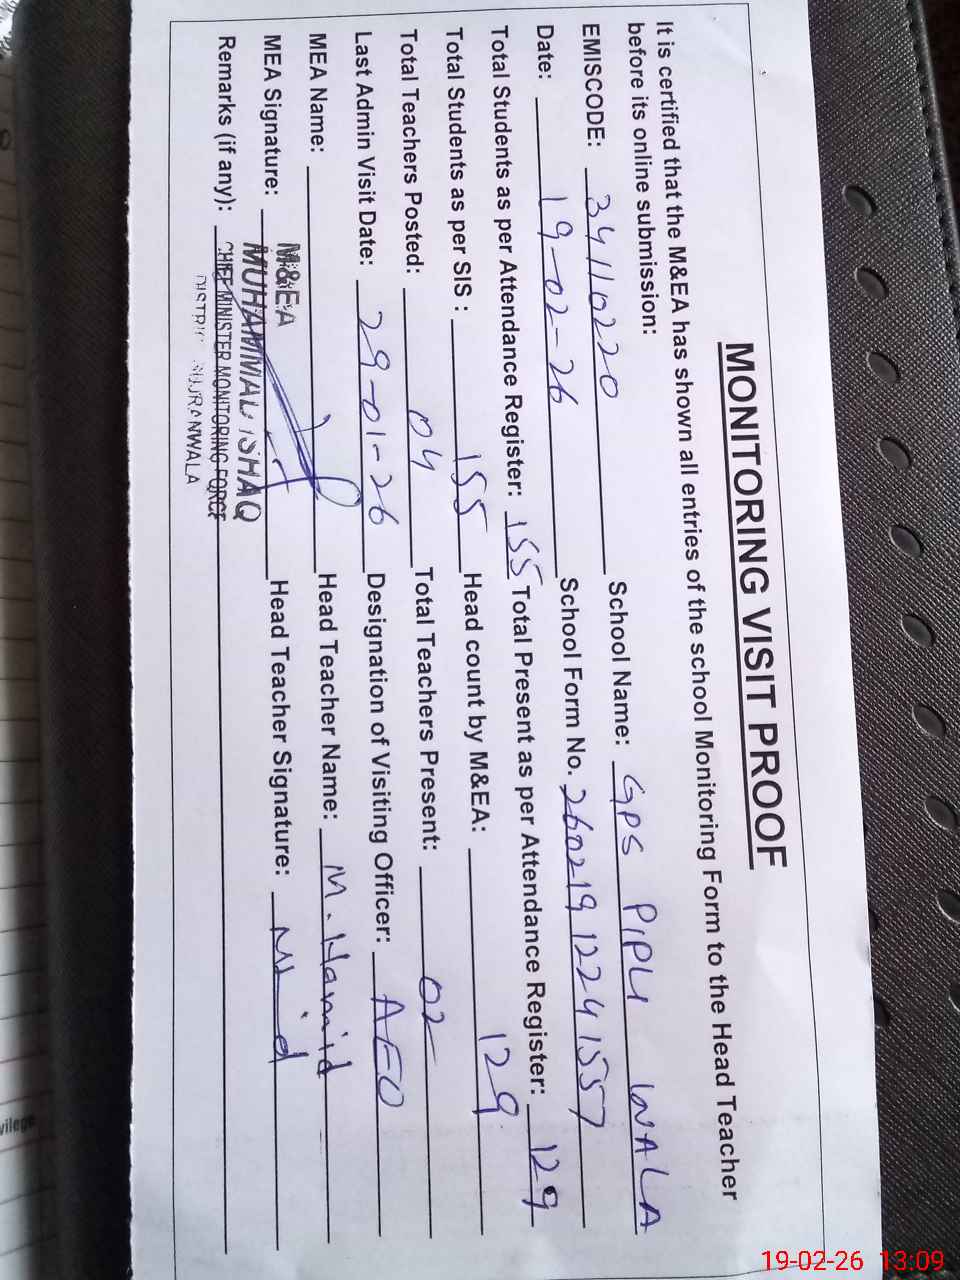 MONITORING VISIT PROOF
It is certified that the M&EA has shown all entries of the school Monitoring Form to the Head Teacher
before its online submission:
EMISCODE: 34110220 School Name: GPS PIPLI WALA
Date: 19-02-26 School Form No. 26021912241557
Total Students as per Attendance Register: 155 Total Present as per Attendance Register: 129
Total Students as per SIS : 155 Head count by M&EA: 129
Total Teachers Posted: 04 Total Teachers Present: 02
Last Admin Visit Date: 29-01-26 Designation of Visiting Officer: AEO
MEA Name: Head Teacher Name: M. Hamid
MEA Signature: Head Teacher Signature:
Remarks (if any):
M&EA
MUHAMMAD ISHAQ
CHIEF MINISTER MONITORING FORCE
DISTRICT GUJRANWALA
vilege
19-02-26 13:09